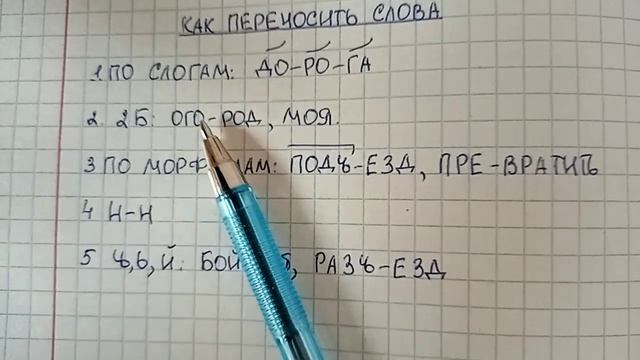 КАК ПЕРЕНОСИТЬ СЛОВА
1 ПО СЛОГАМ: ДО-РО-ГА
2. 2Б: ОГО-РОД, МОЯ.
3 ПО МОРФ АМ: ПОДЪ-ЕЗД, ПРЕ-ВРАТИТЬ
4 Н-Н
5 Ъ, Ь, Й: БОЙ, РАЗЪ-ЕЗД